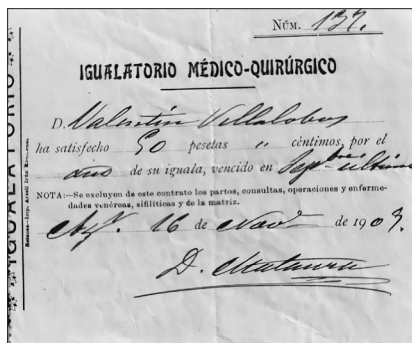 NÚM. 137.
IGUALATORIO MÉDICO-QUIRÚRGICO
D. Valentín Villalobos
ha satisfecho 50 pesetas " céntimos, por el
año de su iguala, vencido en Sepbre último
NOTA:—Se excluyen de este contrato los partos, consultas, operaciones y enferme-
dades venéreas, sifilíticas y de la matriz.
16 de Nov de 1903.
D.
IGUALATORIO